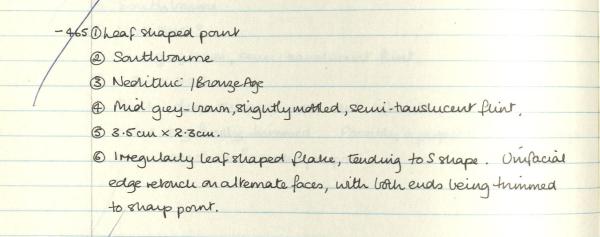 -465 ① Leaf shaped point
② Southbourne
③ Neolithic / Bronze Age
④ Mid grey-brown, slightly mottled, semi-translucent flint.
⑤ 3.5cm × 2.3cm.
⑥ Irregularly leaf shaped flake, tending to S shape. Unifacial
edge retouch on alternate faces, with both ends being trimmed
to sharp point.